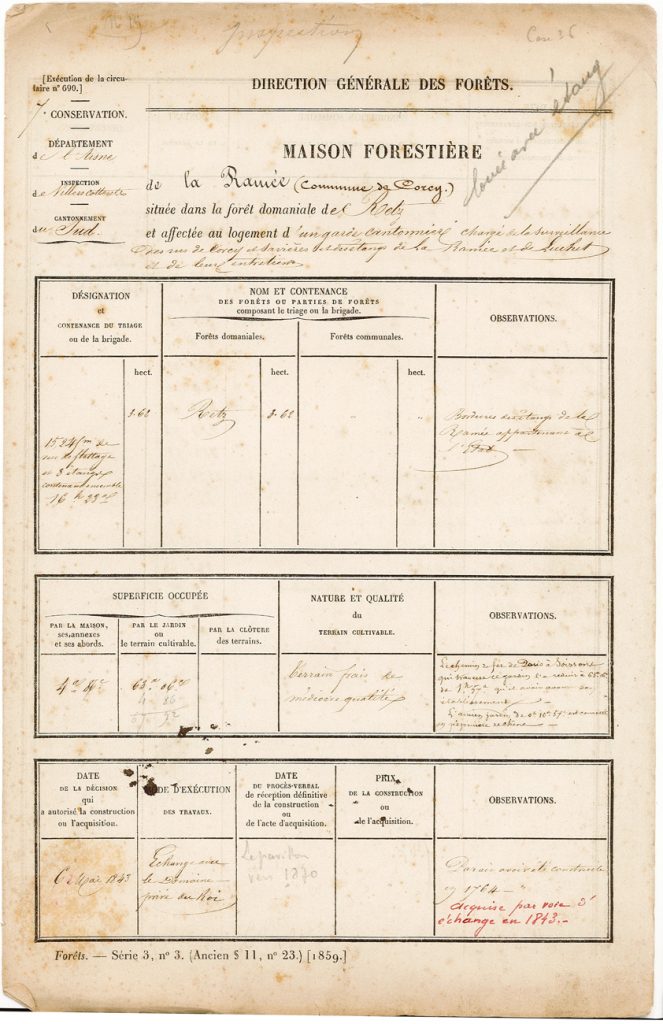 Inspection
[Exécution de la circu-
laire nº 690.]
7e CONSERVATION.
DÉPARTEMENT
de l'Aisne
INSPECTION
de Villers Cotterêts
CANTONNEMENT
du Sud.
DIRECTION GÉNÉRALE DES FORÊTS.
loué avec étang
MAISON FORESTIÈRE
de la Ramée (Commune de Corcy.)
située dans la forêt domaniale de Retz
et affectée au logement d'un garde cantonnier chargé de la surveillance
des rus de Corcy et Savières et des étangs de la Ramée et de
et de leur entretien
DÉSIGNATION
et
CONTENANCE DU TRIAGE
ou de la brigade.
NOM ET CONTENANCE
DES FORÊTS OU PARTIES DE FORÊTS
composant le triage ou la brigade.
Forêts domaniales.
Forêts communales.
OBSERVATIONS.
hect.
hect.
hect.
3.62
Retz
3.62
"
"
Bordures des étangs de la
Ramée appartenant à
l'Etat
1524m de
rus de flottage
et 3 étangs
contenant ensemble
16 h 23a
SUPERFICIE OCCUPÉE
PAR LA MAISON,
ses annexes
et ses abords.
PAR LE JARDIN
ou
le terrain cultivable.
PAR LA CLÔTURE
des terrains.
NATURE ET QUALITÉ
du
TERRAIN CULTIVABLE.
OBSERVATIONS.
Terrain frais de
médiocre qualité
Le chemin de fer de Paris à Soissons
qui traverse ce jardin l'a réduit à
de qu'il avait avant son
établissement.
L'ancien jardin de est converti
en pépinière
DATE
DE LA DÉCISION
qui
a autorisé la construction
ou l'acquisition.
MODE D'EXÉCUTION
DES TRAVAUX.
DATE
DU PROCÈS-VERBAL
de réception définitive
de la construction
ou
de l'acte d'acquisition.
PRIX
DE LA CONSTRUCTION
ou
de l'acquisition.
OBSERVATIONS.
Mai 1843
Echange avec
le Domaine
privé du Roi
Le pavillon
vers 1870
Parait avoir été construite
en 1764
acquise par voie d'
échange en 1843.-
Forêts. — Série 3, nº 3. (Ancien § 11, nº 23.) [1859.]